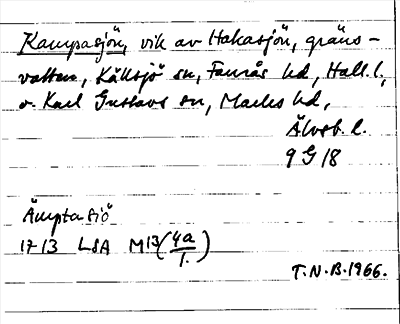 Kampasjön, vik av Hakasjön, gräns-
vatten, Källsjö sn, Faurås hd, Hall. l.,
o. Karl Gustavs sn, Marks hd,
Älvsb. l.
9 G 18
Ämptasiö
1713 LSA M13 (4a/1.)
T.N.B. 1966.